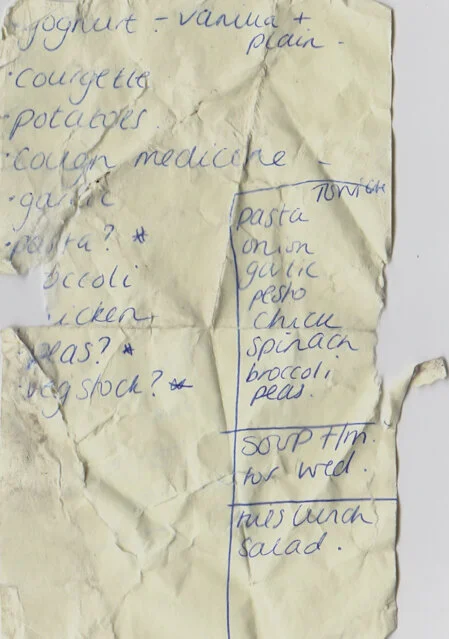 ·yoghurt - vanilla +
plain -
·courgette
·potatoes.
·cough medicine -
·garlic
·pasta? *
occoli
icken
·peas? *
·veg stock? *
TONIGHT
pasta
onion
garlic
pesto
chick
spinach
broccoli
peas.
SOUP t/m.
for wed.
tues lunch
salad.